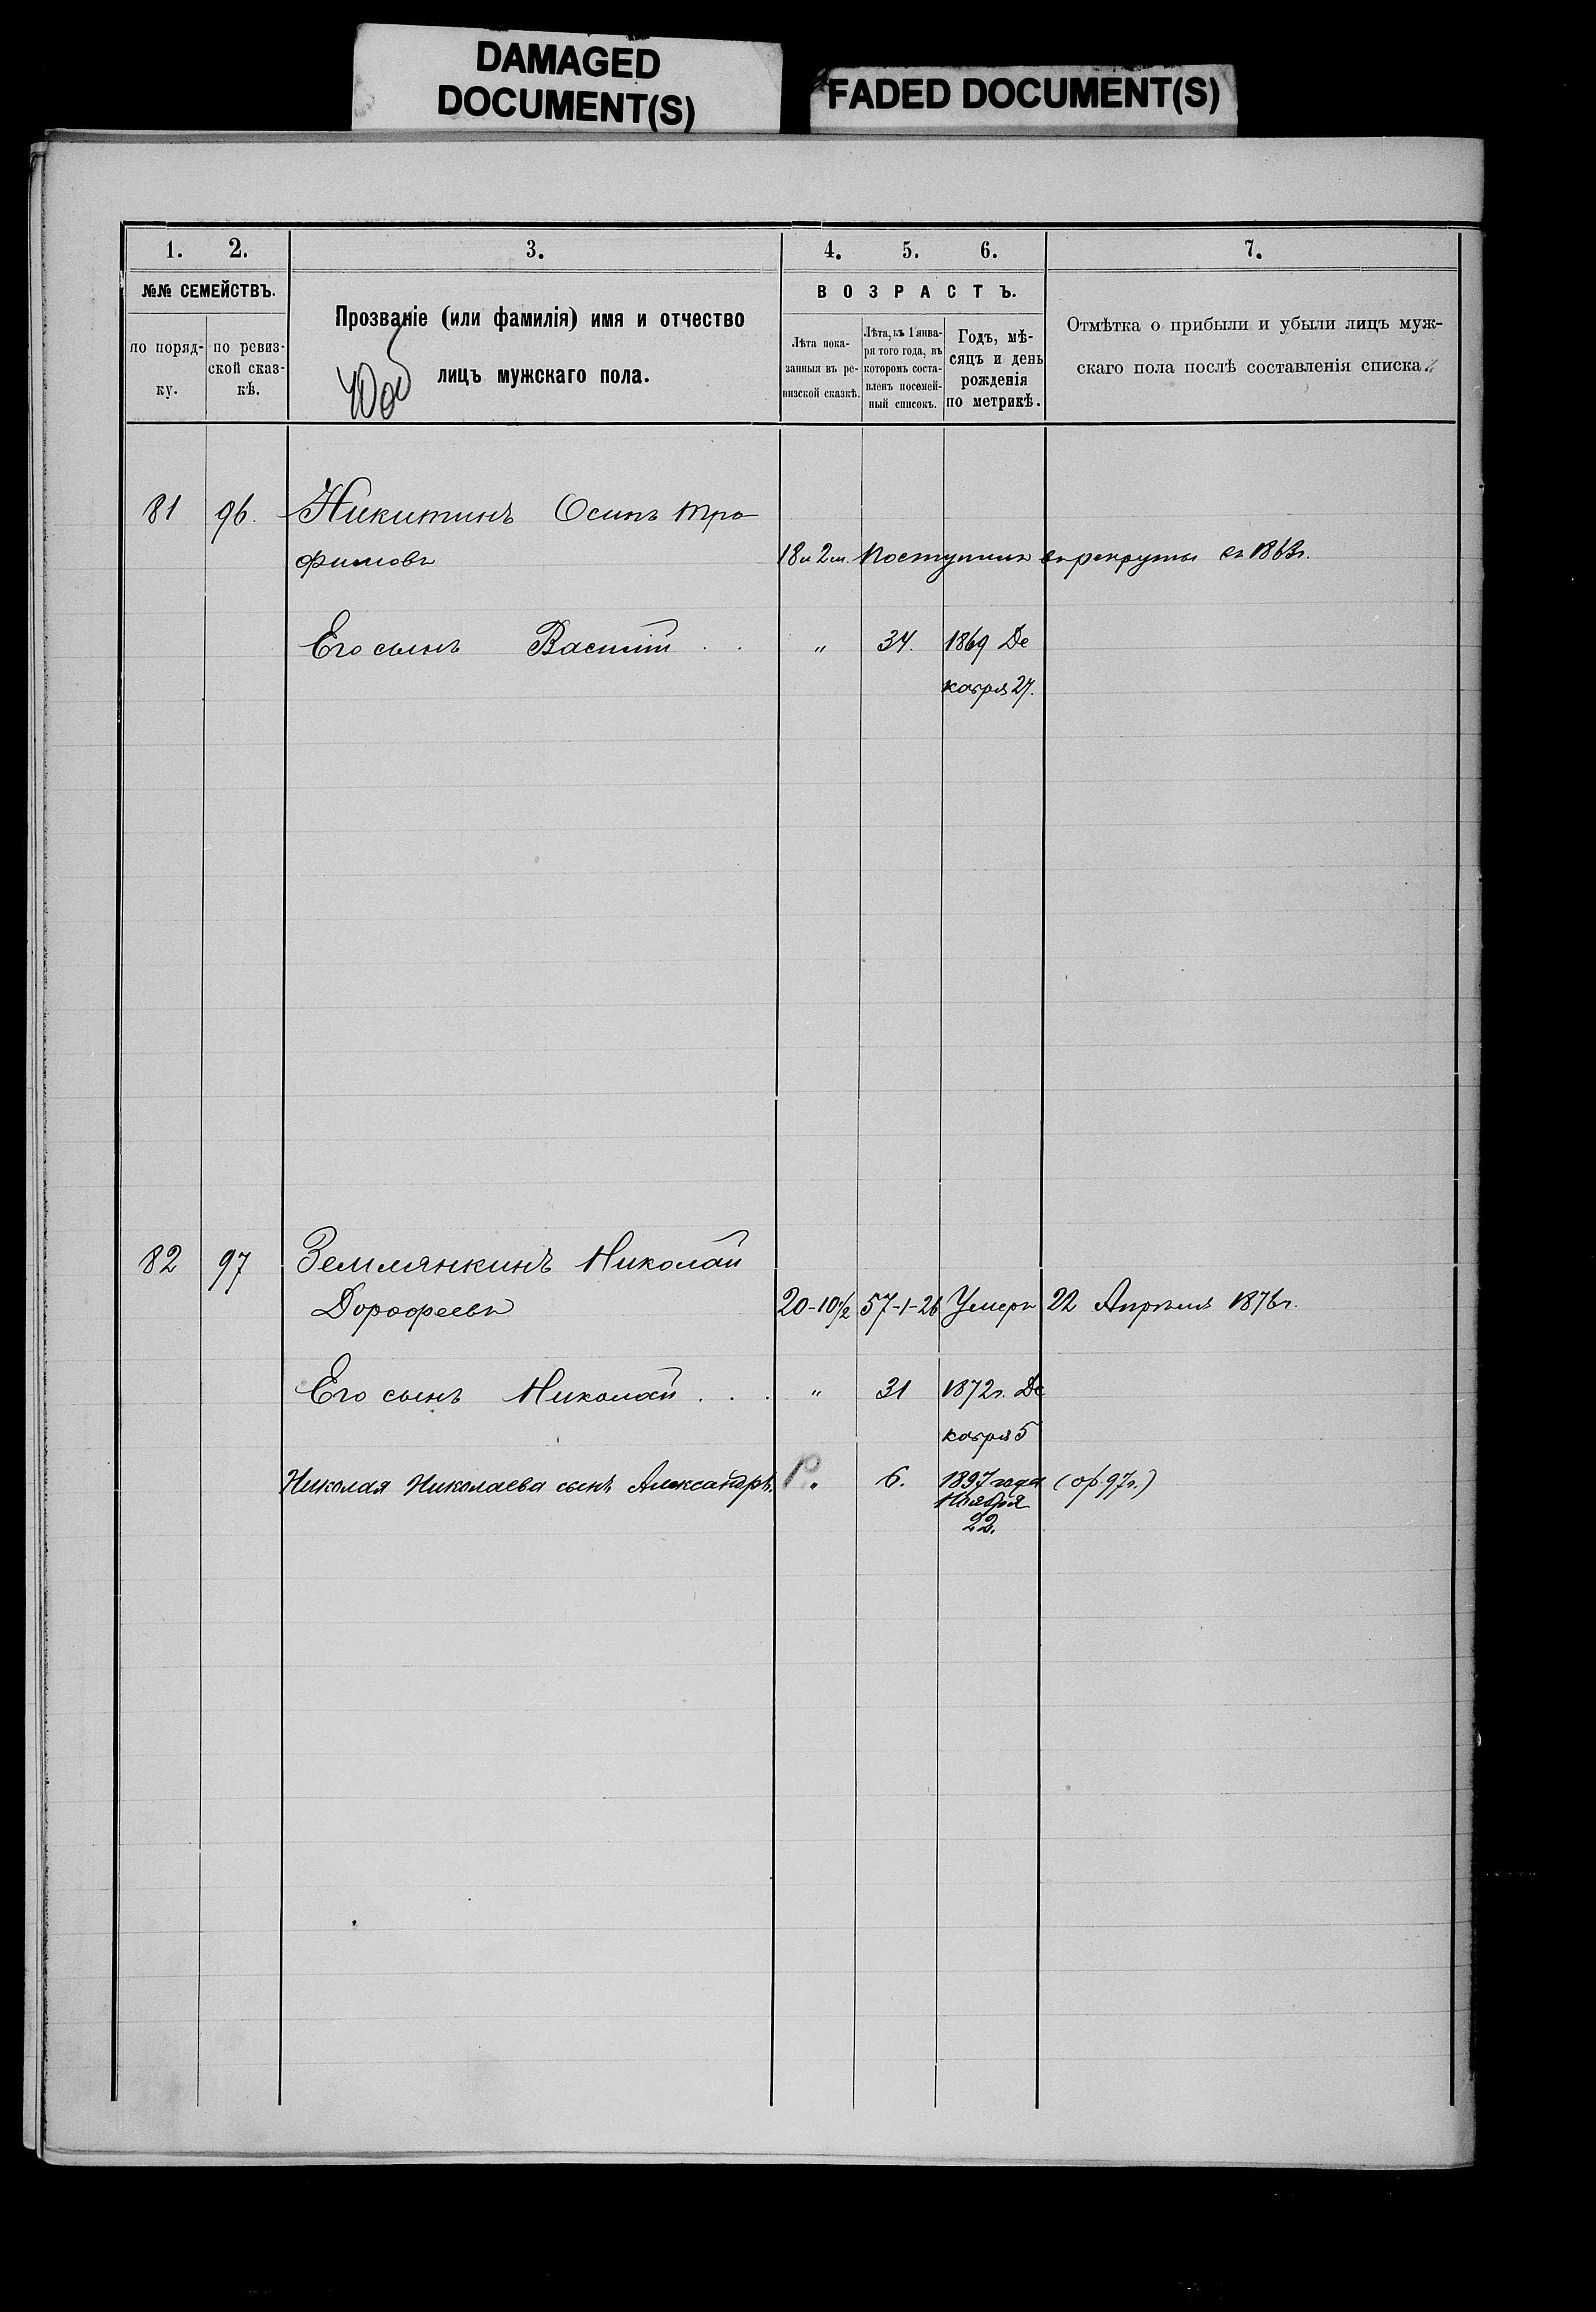 DAMAGED
DOCUMENT(S)
FADED DOCUMENT(S)
1. 2. 3. 4. 5. 6. 7.
№№ СЕМЕЙСТВЪ.
по поряд-
ку.
по ревиз-
ской сказ-
кѣ.
Прозваніе (или фамилія) имя и отчество
лицъ мужскаго пола.
ВОЗРАСТЪ.
Лѣта пока-
занныя въ ре-
визской сказкѣ.
Лѣта, къ 1 янва-
ря того года, въ
которомъ соста-
вленъ посемей-
ный списокъ.
Годъ, мѣ-
сяцъ и день
рожденія
по метрикѣ.
Отмѣтка о прибыли и убыли лицъ муж-
скаго пола послѣ составленія списка.
81 96. Никитинъ Осипъ Тро
фимовъ 18 и 2 м. Поступилъ въ рекруты въ 1863г.
Его сынъ Василій . . " 34. 1869 Де
кабря 27.
82 97 Землянкинъ Николай
Дорофеевъ 20-10/2 57-1-26 Умеръ 22 Апрѣля 1876г.
Его сынъ Николай . . . " 31 1872г. Де
кабря 5
Николая Николаева сынъ Александръ. " 6. 1897 года (ор. 97г.)
Ноября
22.